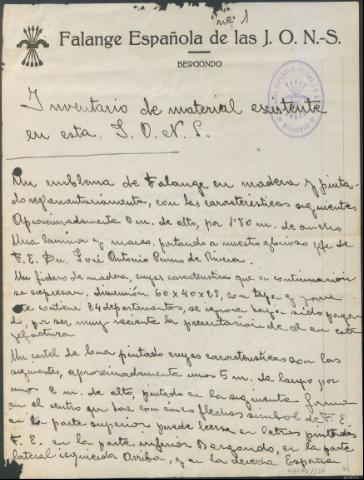 nº 1
Falange Española de las J. O. N.-S.
BERGONDO
Inventario de material existente
en esta J. O. N. S.
Un emblema de Falange en madera y pinta-
do reglamentariamente, con las caracteristicas siguientes
Aproximadamente 2 m. de alto, por 1'80 m. de ancho
Una lamina y marco, portando a nuestro glorioso jefe de
F. E. Dn. José Antonio Primo de Rivera.
Un fichero de madera, cuyas caracteristicas que a continuación
se expresan, dimensión 60 x 40 x 25, con tapa y
contiene 24 departamentos, se ignora haya sido paga-
do, por ser muy reciente la presentación de él en esta
jefactura
Un cartel de lona pintado cuyas caracteristicas son las
siguientes, aproximadamente unos 5 m. de largo por
uno 2 m. de alto, pintado en la siguiente forma
en el centro con cinco flechas simbol de F. E.
en la parte superior puede leerse en letras pintadas
F. E. en la parte inferior Bergondo, en la parte
lateral izquierda Arriba, y en la derecha España